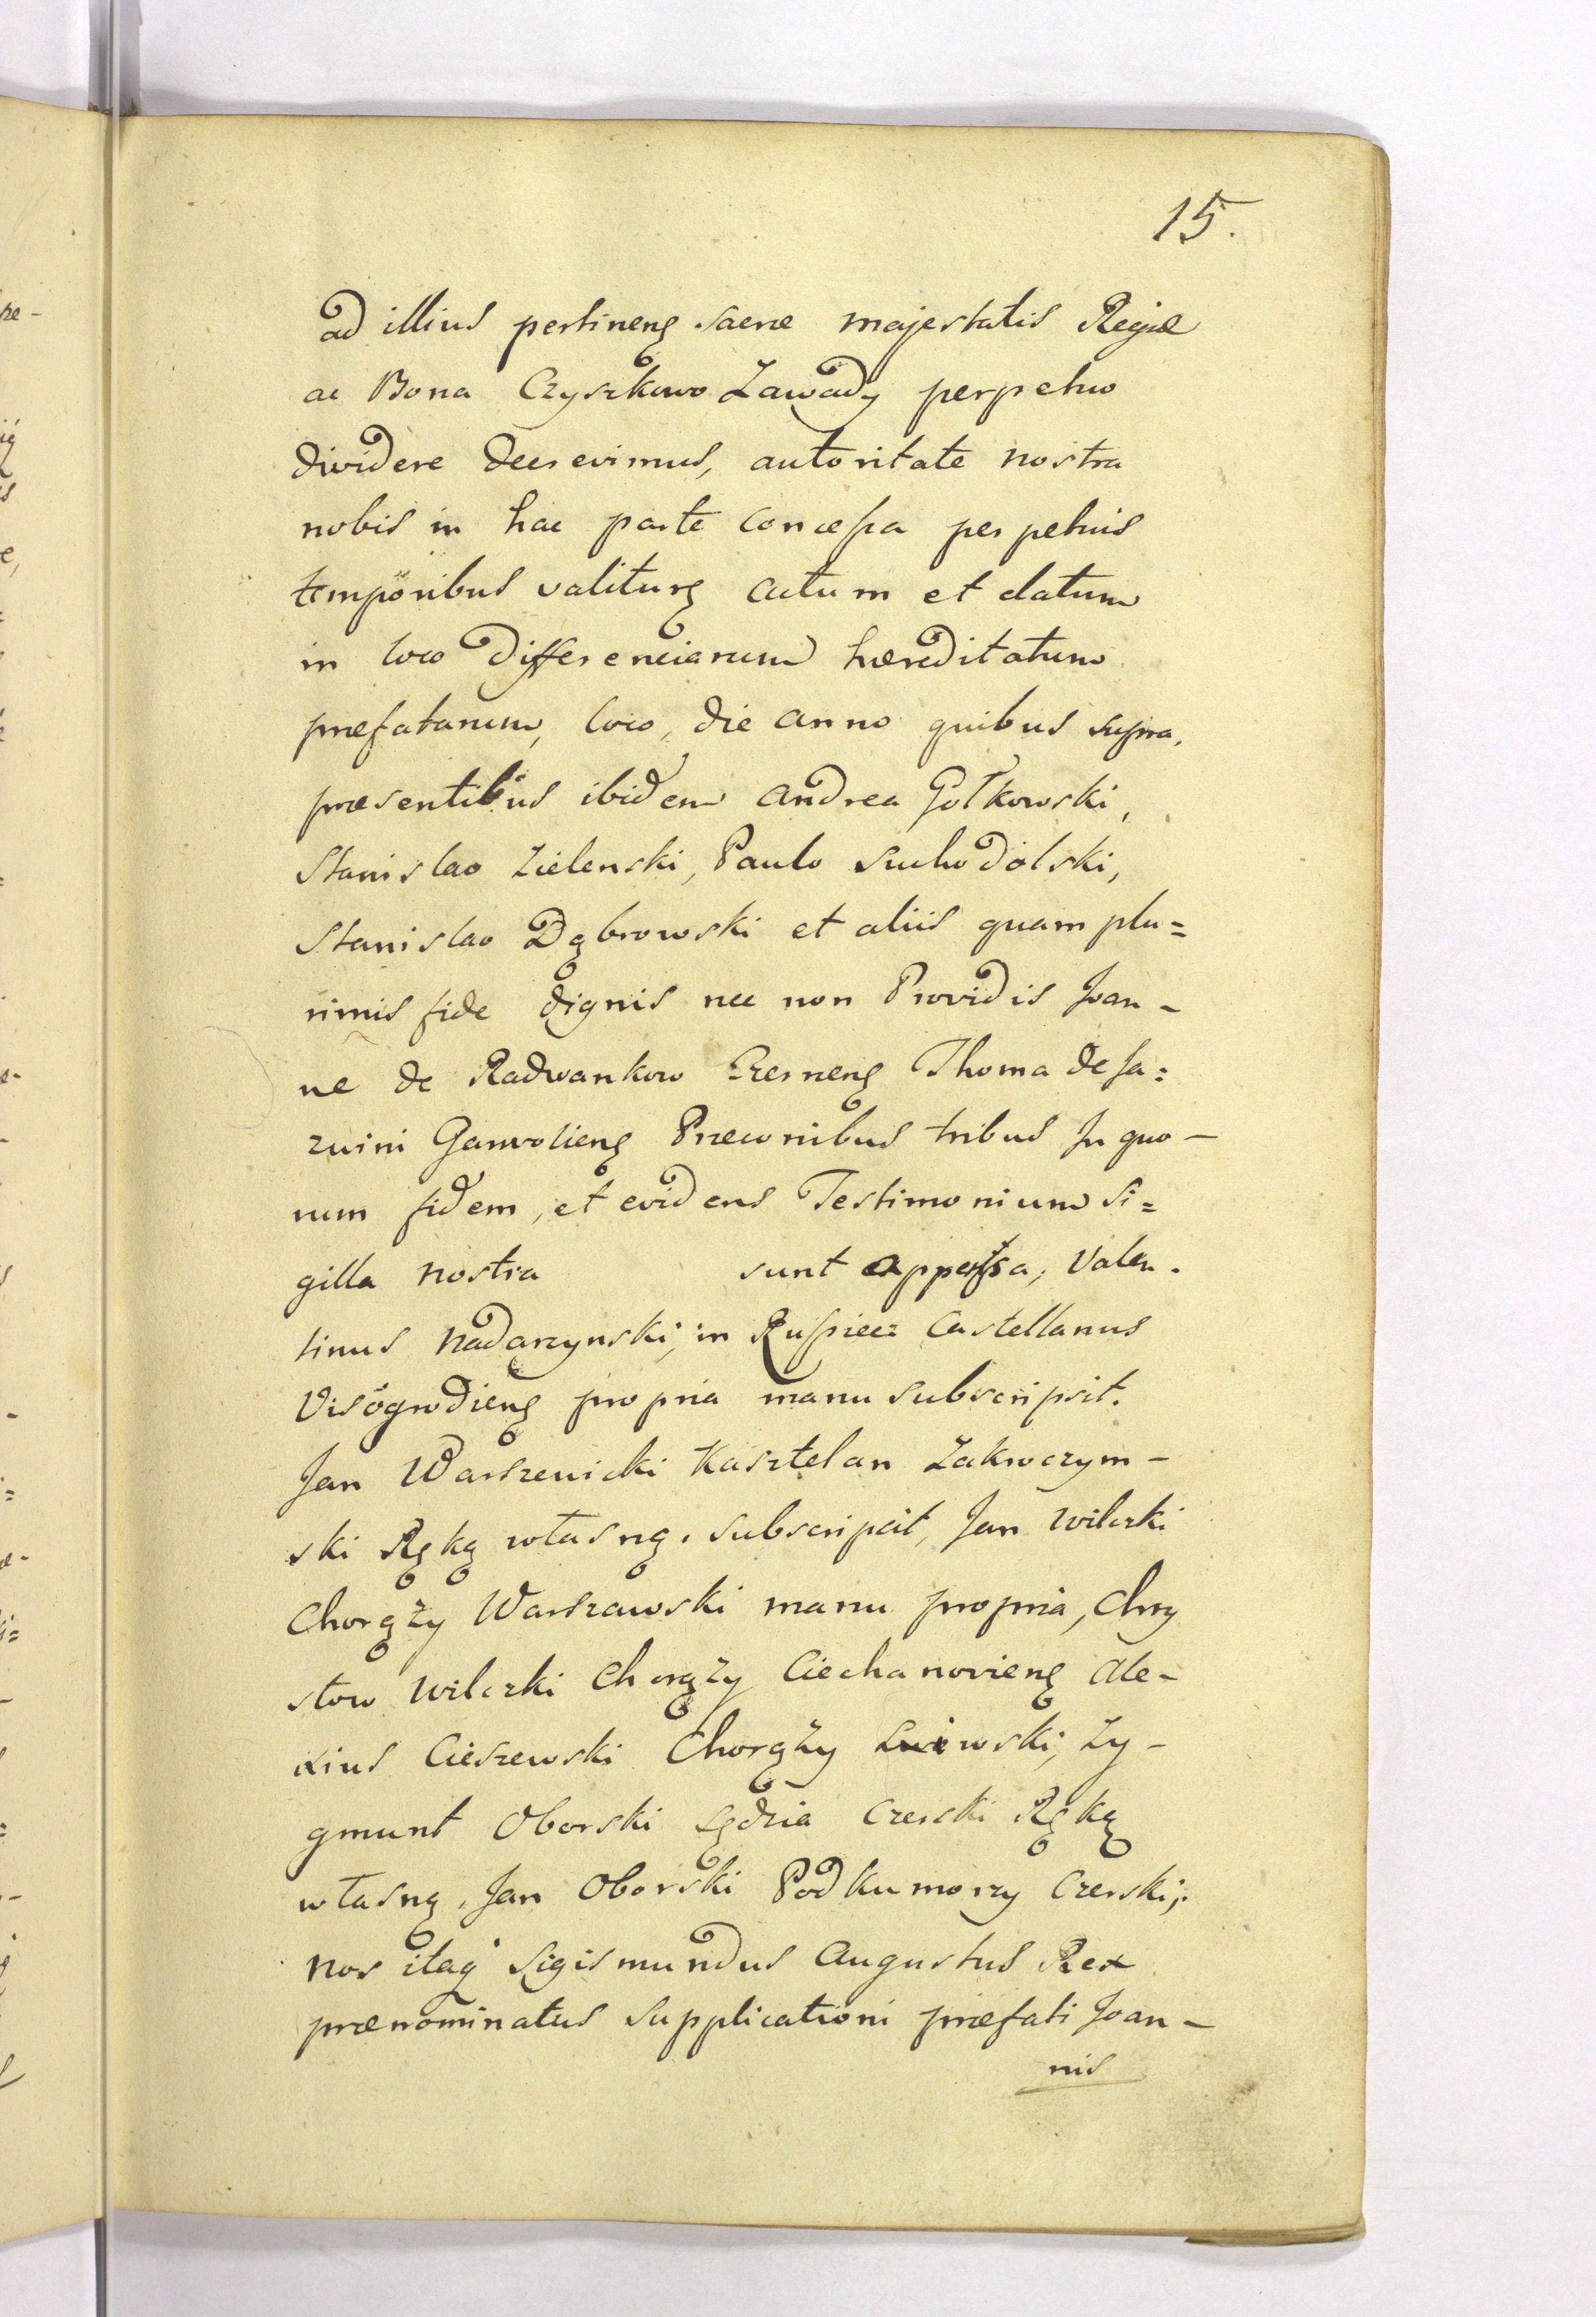 15.
ad illius pertinenę sacræ majestatis Regiæ
ac Bona Czyszkowo Zawady perpetuo
dividere decrevimus, autoritate nostra
nobis in hac parte concessa perpetuis
temporibus valiturę actum et datum
in loco differenciarum hæreditatum
præfatarum, loco, die anno quibus supra,
præsentibus ibidem Andrea Gołkowski,
Stanislao Zielenski, Paulo Suchodolski,
Stanislao Dąbrowski et aliis quam plu=
rimis fide dignis nec non Providis Joan-
ne de Radwankow Czernenę Thoma de Ja=
zwini Garwolienę Præconibus tribus In quo-
rum fidem, et evidens Testimonium Si=
gilla nostra sunt appensa, Valen-
tinus Nadarzynski, in Russiecz Castellanus
Visogrodienę propria manu subscripsit.
Jan Warszewicki Kasztelan Zakroczym-
ski Ręką własną, subscripsit, Jan Wilczki
Chorąży Warszawski manu propria, Chry
stow Wilczki Chorąży Ciechanovienę Ale-
xius Cieszewski Chorąży Liwski, Zy-
gmunt Oborski Sędzia Czerski Ręką
własną, Jan Oborski Podkumorzy Czerski,
Nos itaq Sigismundus Augustus Rex
prænominatus supplicationi præfati Joan-
nis